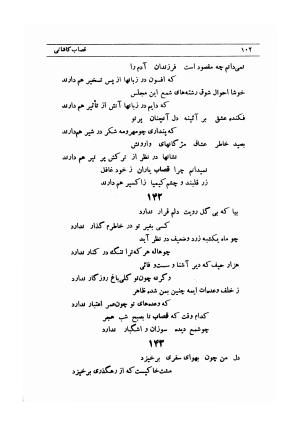 ۱۰۲ قصاب کاشانی
نمی‌دانم چه مقصود است فرزندان آدم را
که افسون در زبانها از پس تسخیر هم دارند
خوشا احوال شوق رشته‌های شمع این مجلس
که دایم در زبانها آتش از تأثیر هم دارند
فکنده عشق بر آئینه دل آنچنان پرتو
که پنداری چو مهر و مه شکر در شیر هم دارند
بصید خاطر عشاق مژگانهای وارونش
نشانها در نظر از ترکش پر تیر هم دارند
نمیدانم چرا قصاب یاران ز خود غافل
زر قلبند و چشم کیمیا زاکسیر هم دارند
۱۴۲
بیا که بی گل رویت دلم قرار ندارد
کسی بغیر تو در خاطرم گذار ندارد
چو ماه یکشبه زرد و ضعیف در نظر آید
چو هاله هر که ترا تنگ در کنار ندارد
هزار حیف که دیر آشنا و سست وفائی
وگرنه چون تو گلی باغ روزگار ندارد
ز خلف وعده‌ات ایمه چنین بمن شده ظاهر
که وعده‌های تو چون عمر اعتبار ندارد
کدام وقت که قصاب تا بصبح شب هجر
چو شمع دیده سوزان و اشکبار ندارد
۱۴۳
دل من چون بهوای سفری برخیزد
مشت خاکیست که از رهگذری برخیزد